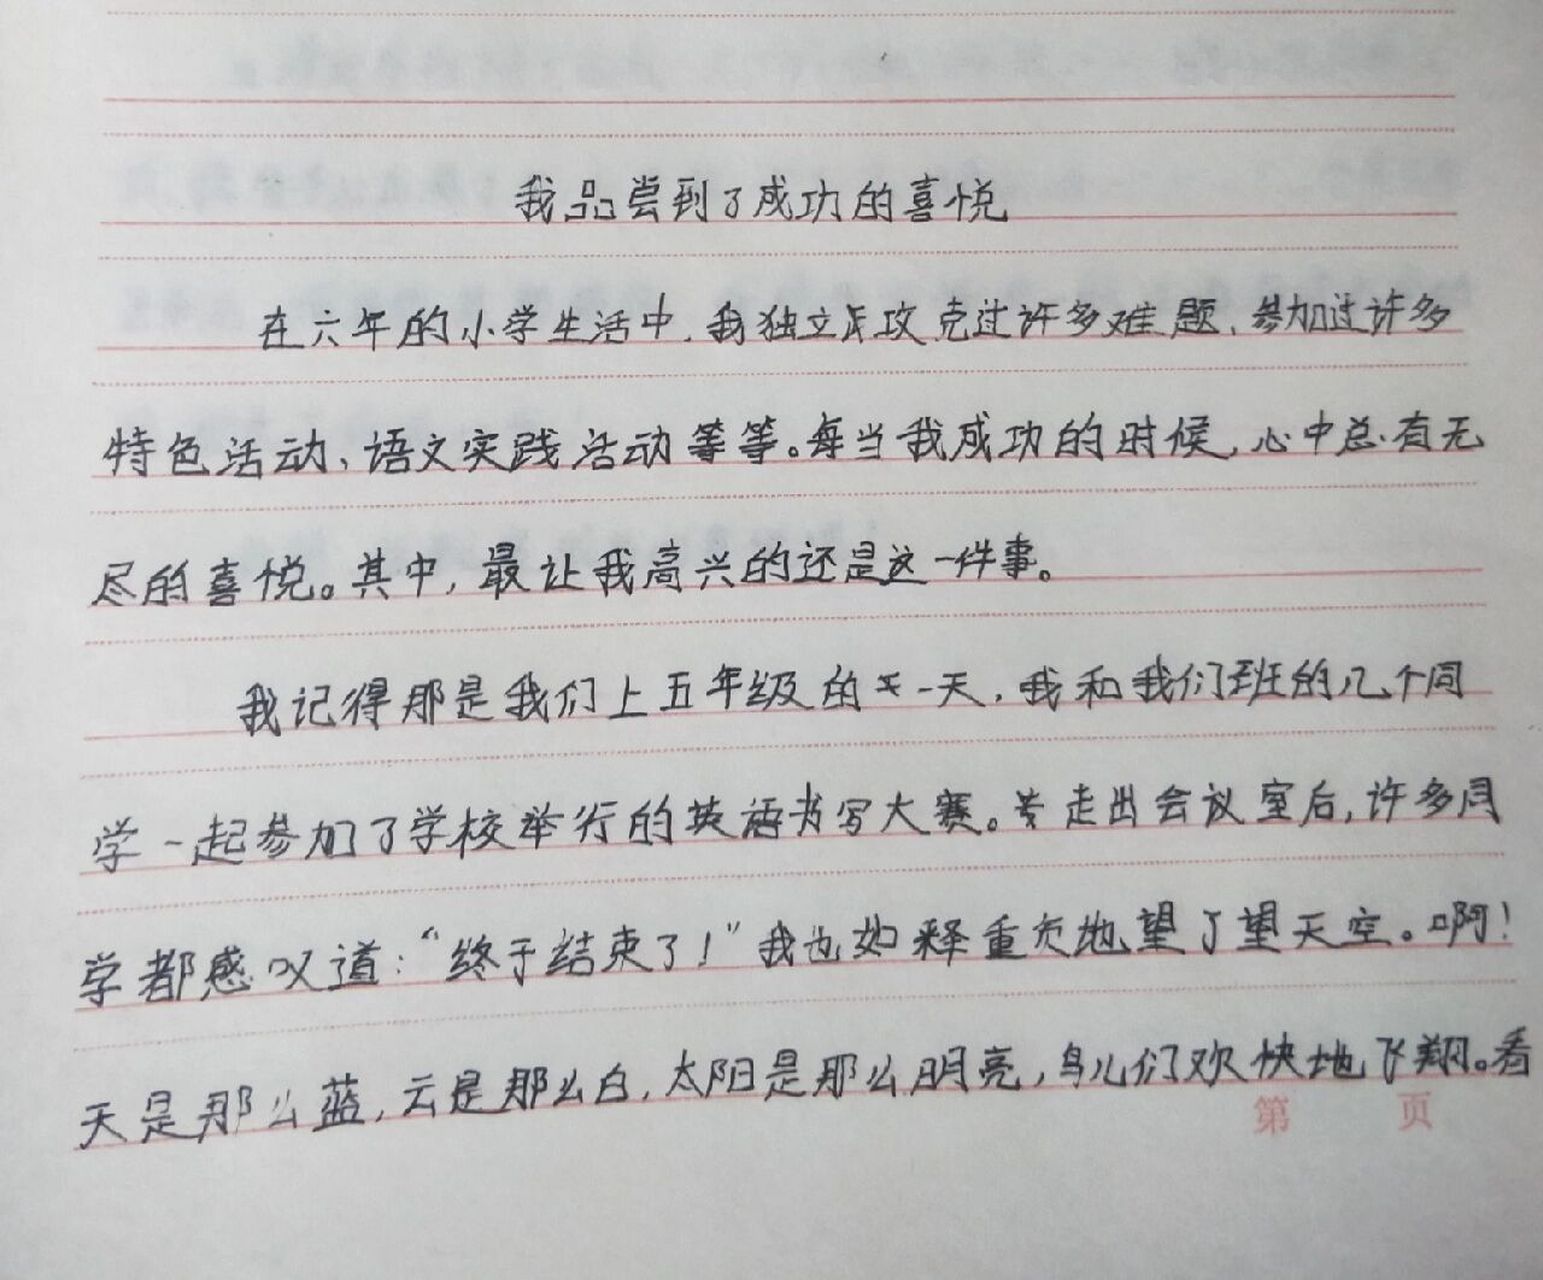 我品尝到了成功的喜悦
在六年的小学生活中，我独立攻克过许多难题、参加过许多
特色活动、语文实践活动等等。每当我成功的时候，心中总有无
尽的喜悦。其中，最让我高兴的还是这一件事。
我记得那是我们上五年级的一天，我和我们班的几个同
学一起参加了学校举行的英语书写大赛。走出会议室后，许多同
学都感叹道：“终于结束了！”我也如释重负地望了望天空。啊！
天是那么蓝，云是那么白，太阳是那么明亮，鸟儿们欢快地飞翔。看
第 页